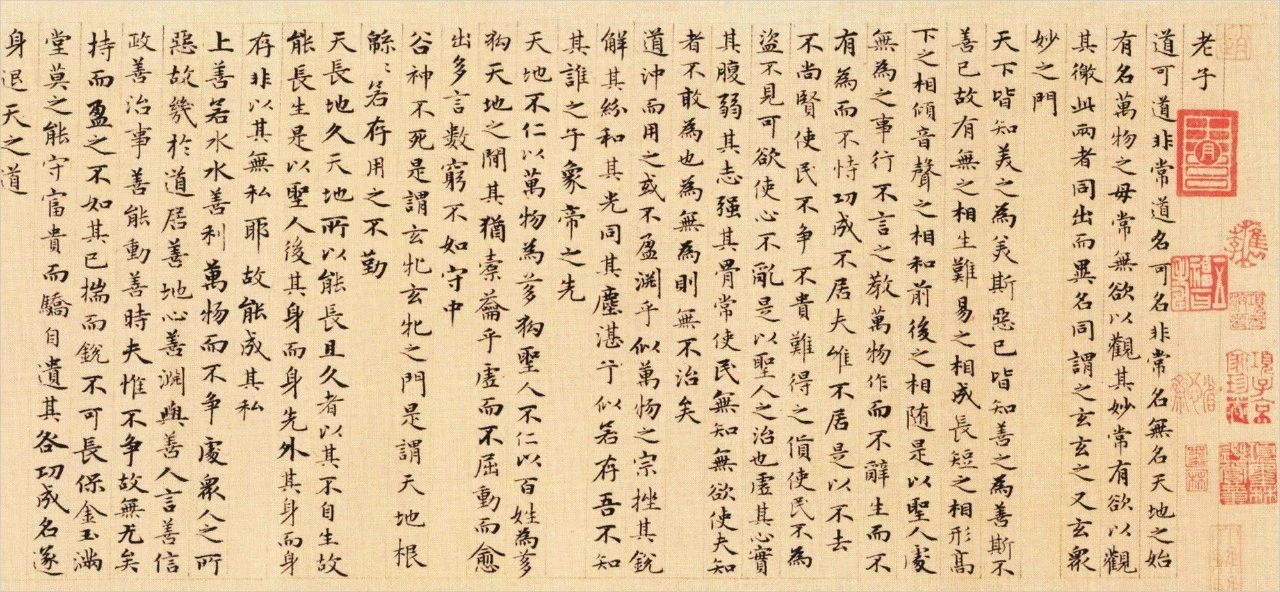 老子
道可道非常道名可名非常名無名天地之始
有名萬物之母常無欲以觀其妙常有欲以觀
其徼此兩者同出而異名同謂之玄玄之又玄衆
妙之門
天下皆知美之為美斯惡已皆知善之為善斯不
善已故有無之相生難易之相成長短之相形高
下之相傾音聲之相和前後之相随是以聖人處
無為之事行不言之教萬物作而不辭生而不
有為而不恃功成不居夫惟不居是以不去
不尚賢使民不争不貴難得之貨使民不為
盜不見可欲使心不亂是以聖人之治也虛其心實
其腹弱其志强其骨常使民無知無欲使夫知
者不敢為也為無為則無不治矣
道沖而用之或不盈淵乎似萬物之宗挫其銳
解其紛和其光同其塵湛兮似若存吾不知
其誰之子象帝之先
天地不仁以萬物為芻狗聖人不仁以百姓為芻
狗天地之間其猶橐籥乎虛而不屈動而愈
出多言數窮不如守中
谷神不死是謂玄牝玄牝之門是謂天地根
緜〻若存用之不勤
天長地久天地所以能長且久者以其不自生故
能長生是以聖人後其身而身先外其身而身
存非以其無私耶故能成其私
上善若水水善利萬物而不争處衆人之所
惡故幾於道居善地心善淵與善人言善信
政善治事善能動善時夫惟不争故無尤矣
持而盈之不如其已揣而銳不可長保金玉滿
堂莫之能守富貴而驕自遺其咎功成名遂
身退天之道
項子京家珍藏